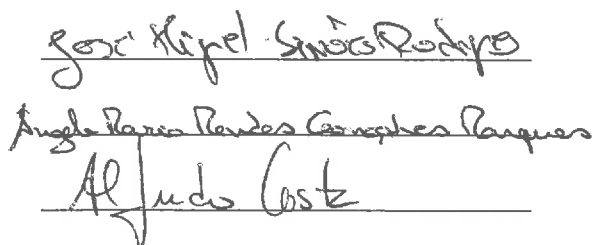 José Miguel Simão Rodrigo
Ângela Maria Mendes Gonçalves Marques
Costa